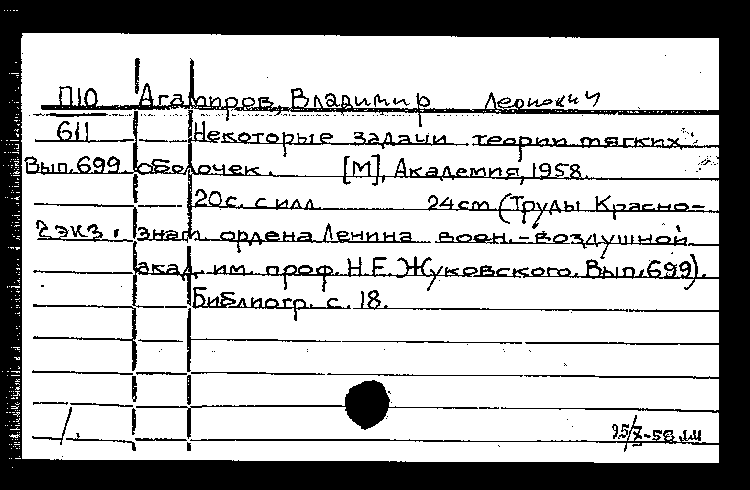 П10 Агамиров, Владимир Леонович
611 Некоторые задачи теории мягких
Вып.699 оболочек. [М], Академия, 1958.
20с. с илл 24cm (Труды Красно-
2экз. знам ордена Ленина воен.-воздушной
акад. им. проф. Н.Е. Жуковского. Вып.699).
Библиогр. с. 18.